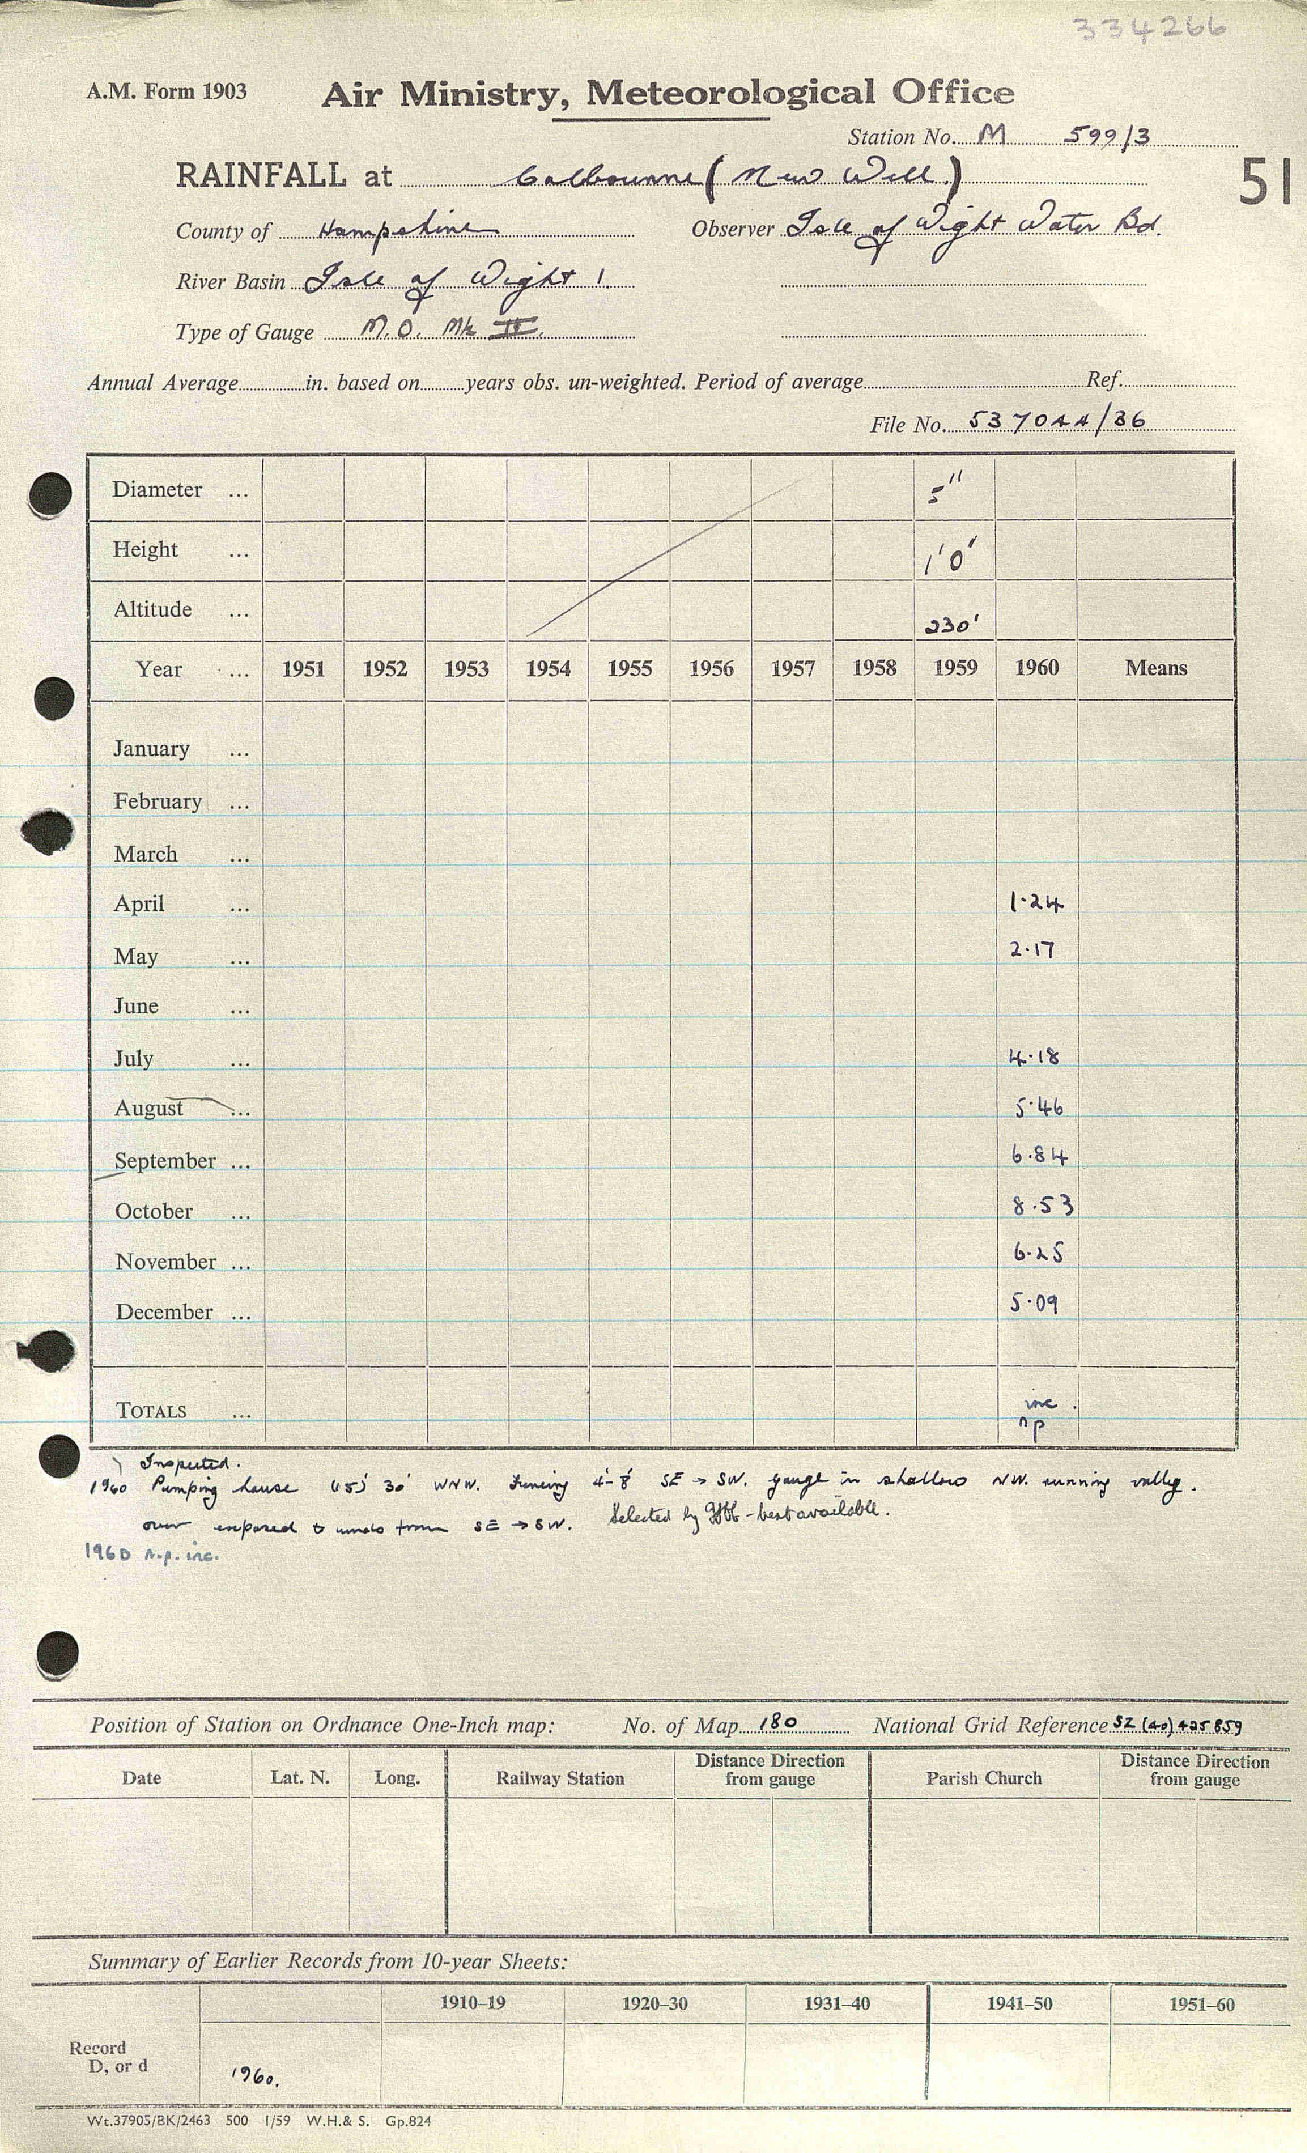 334266
A.M. Form 1903
Air Ministry, Meteorological Office
Station No. M 599/3
51
RAINFALL at Calbourne (New Well)
County of Hampshire Observer Isle of Wight Water Bd.
River Basin Isle of Wight 1.
Type of Gauge M.O. Mk II.
Annual Average in. based on years obs. un-weighted. Period of average Ref.
File No. 537044/36
Diameter ... 5"
Height ... 1'0"
Altitude ... 230'
Year ... 1951 1952 1953 1954 1955 1956 1957 1958 1959 1960 Means
January ...
February ...
March ...
April ... 1·24
May ... 2·17
June ...
July ... 4·18
August ... 5·46
September ... 6·84
October ... 8·53
November ... 6·25
December ... 5·09
TOTALS ... inc.
np
Inspected.
1960 Pumping house (15') 30' WNW. Fencing 4'-8' SE → SW. gauge in shallow NW. running valley.
over exposed to winds from SE → SW. Selected by - best available.
1960 n.p. inc.
Position of Station on Ordnance One-Inch map: No. of Map 180 National Grid Reference SZ (40) 425859
Date Lat. N. Long. Railway Station Distance Direction from gauge Parish Church Distance Direction from gauge
Summary of Earlier Records from 10-year Sheets:
1910–19 1920–30 1931–40 1941–50 1951–60
Record
D, or d 1960.
Wt.37905/BK/2463 500 1/59 W.H.& S. Gp.824